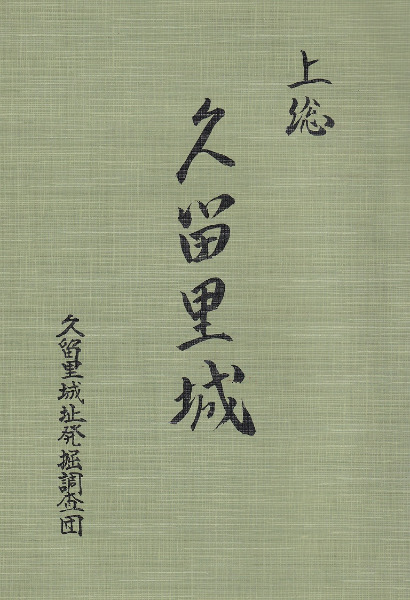 上総
久留里城
久留里城址発掘調査団